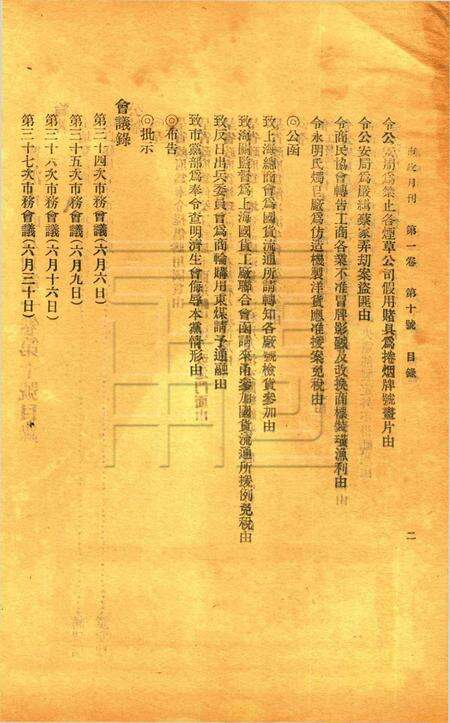 市政月刊　第一卷　第十號　目錄　二
令公安局爲禁止各煙草公司假用賭具爲捲烟牌號畫片由
令公安局爲嚴緝蔡家弄刦案盜匪由
令商民協會轉告工商各業不准冒牌影戤及改換商標裝璜漁利由
令永明民燭皂廠爲仿造機製洋貨應准援案免稅由
◎公函
致上海總商會爲國貨流通所請轉知各廠號檢貨參加由
致海關監督爲上海國貨工廠聯合會函請來甬參加國貨流通所援例免稅由
致反日出兵委員會爲商輪購用東煤請予通融由
致市黨部爲奉令查明濟生會侮辱本黨情形由
◎布告
◎批示
會議錄
第三十四次市務會議(六月六日)
第三十五次市務會議(六月九日)
第三十六次市務會議(六月十六日)
第三十七次市務會議(六月三十日)